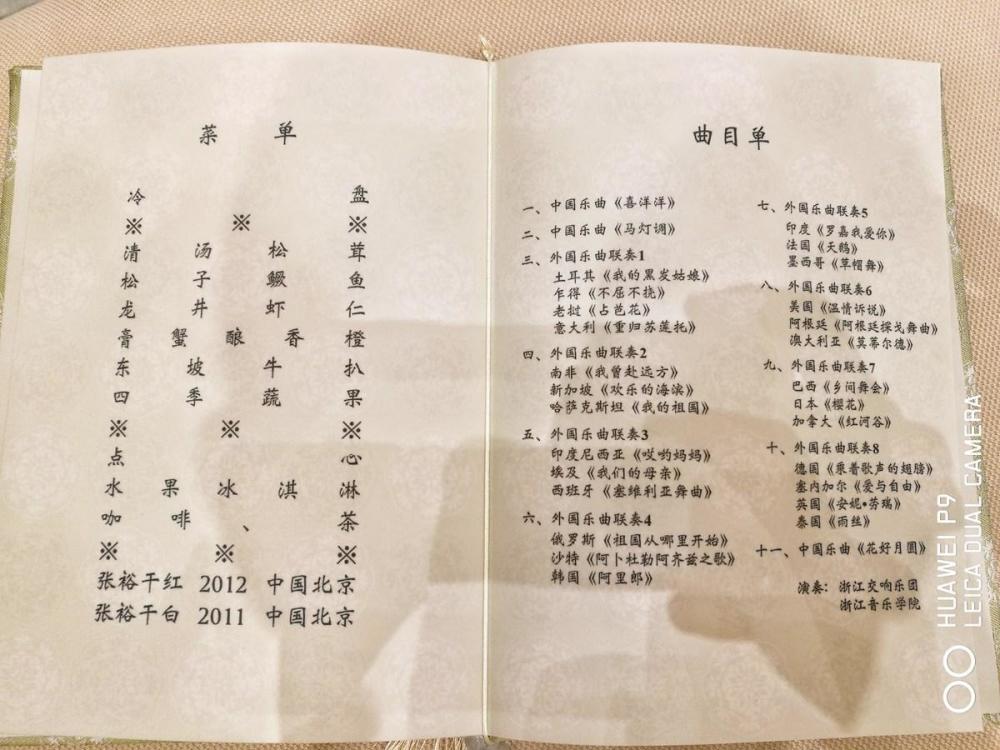 菜单
冷盘
※ ※ ※
清汤松茸
松子鳜鱼
龙井虾仁
膏蟹酿香橙
东坡牛扒
四季蔬果
※ ※ ※
点心
水果冰淇淋
咖啡、茶
※ ※ ※
张裕干红 2012 中国北京
张裕干白 2011 中国北京
曲目单
一、中国乐曲《喜洋洋》
二、中国乐曲《马灯调》
三、外国乐曲联奏1
土耳其《我的黑发姑娘》
乍得《不屈不挠》
老挝《占芭花》
意大利《重归苏莲托》
四、外国乐曲联奏2
南非《我曾赴远方》
新加坡《欢乐的海滨》
哈萨克斯坦《我的祖国》
五、外国乐曲联奏3
印度尼西亚《哎哟妈妈》
埃及《我们的母亲》
西班牙《塞维利亚舞曲》
六、外国乐曲联奏4
俄罗斯《祖国从哪里开始》
沙特《阿卜杜勒阿齐兹之歌》
韩国《阿里郎》
七、外国乐曲联奏5
印度《罗嘉我爱你》
法国《天鹅》
墨西哥《草帽舞》
八、外国乐曲联奏6
美国《温情诉说》
阿根廷《阿根廷探戈舞曲》
澳大利亚《莫蒂尔德》
九、外国乐曲联奏7
巴西《乡间舞会》
日本《樱花》
加拿大《红河谷》
十、外国乐曲联奏8
德国《乘着歌声的翅膀》
塞内加尔《爱与自由》
英国《安妮•劳瑞》
泰国《雨丝》
十一、中国乐曲《花好月圆》
演奏：浙江交响乐团
浙江音乐学院
HUAWEI P9
LEICA DUAL CAMERA